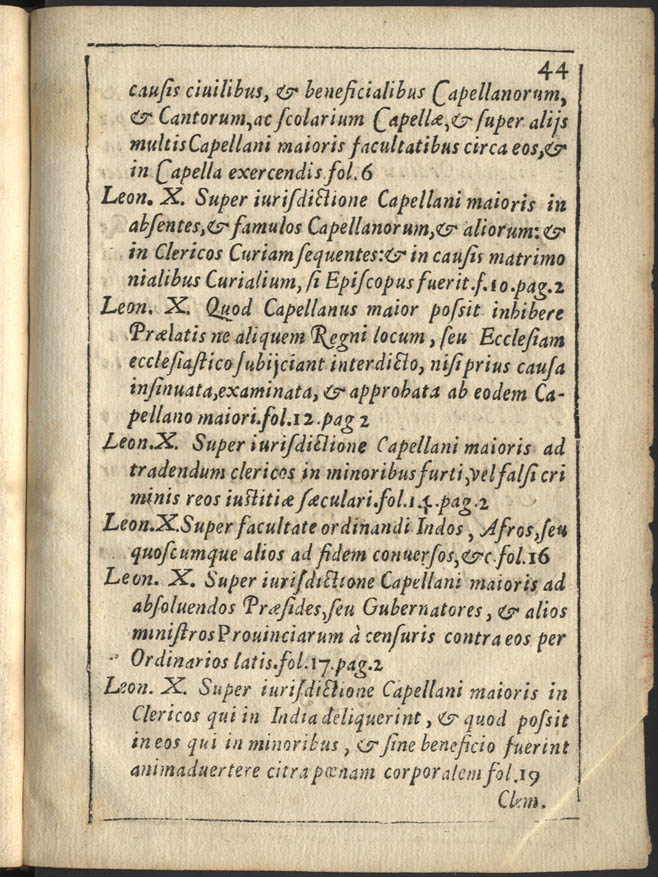 44
cauſis ciuilibus, & beneficialibus Capellanorum,
& Cantorum, ac ſcolarium Capellæ, & ſuper alijs
multis Capellani maioris facultatibus circa eos, &
in Capella exercendis. fol. 6
Leon. X. Super iuriſdictione Capellani maioris in
abſentes, & famulos Capellanorum, & aliorum: &
in Clericos Curiam ſequentes: & in cauſis matrimo
nialibus Curialium, ſi Epiſcopus fuerit. f. 10. pag. 2
Leon. X. Quod Capellanus maior poſsit inhibere
Prælatis ne aliquem Regni locum, ſeu Eccleſiam
eccleſiaſtico ſubijciant interdicto, niſi prius cauſa
inſinuata, examinata, & approbata ab eodem Ca-
pellano maiori. fol. 12. pag 2
Leon. X. Super iuriſdictione Capellani maioris ad
tradendum clericos in minoribus furti, vel falſi cri
minis reos iuſtitiæ ſæculari. fol. 14. pag. 2
Leon. X. Super facultate ordinandi Indos, Afros, ſeu
quoſcumque alios ad fidem conuerſos, &c. fol. 16
Leon. X. Super iuriſdictione Capellani maioris ad
abſoluendos Præſides, ſeu Gubernatores, & alios
miniſtros Prouinciarum à cenſuris contra eos per
Ordinarios latis. fol. 17. pag. 2
Leon. X. Super iuriſdictione Capellani maioris in
Clericos qui in India deliquerint, & quod poſsit
in eos qui in minoribus, & ſine beneficio fuerint
animaduertere citra pœnam corporalem fol. 19
Clem.